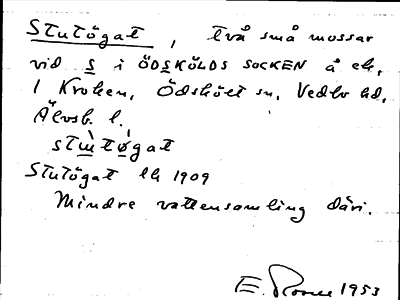 Stutögat, två små mossar
vid s i ÖDSKÖLDS SOCKEN å ek.
1 Kroken, Ödskölt sn, Vedbo hd,
Älvsb. l.
stut øgat
Stutögat Ek 1909
Mindre vattensamling däri.
E. 1953